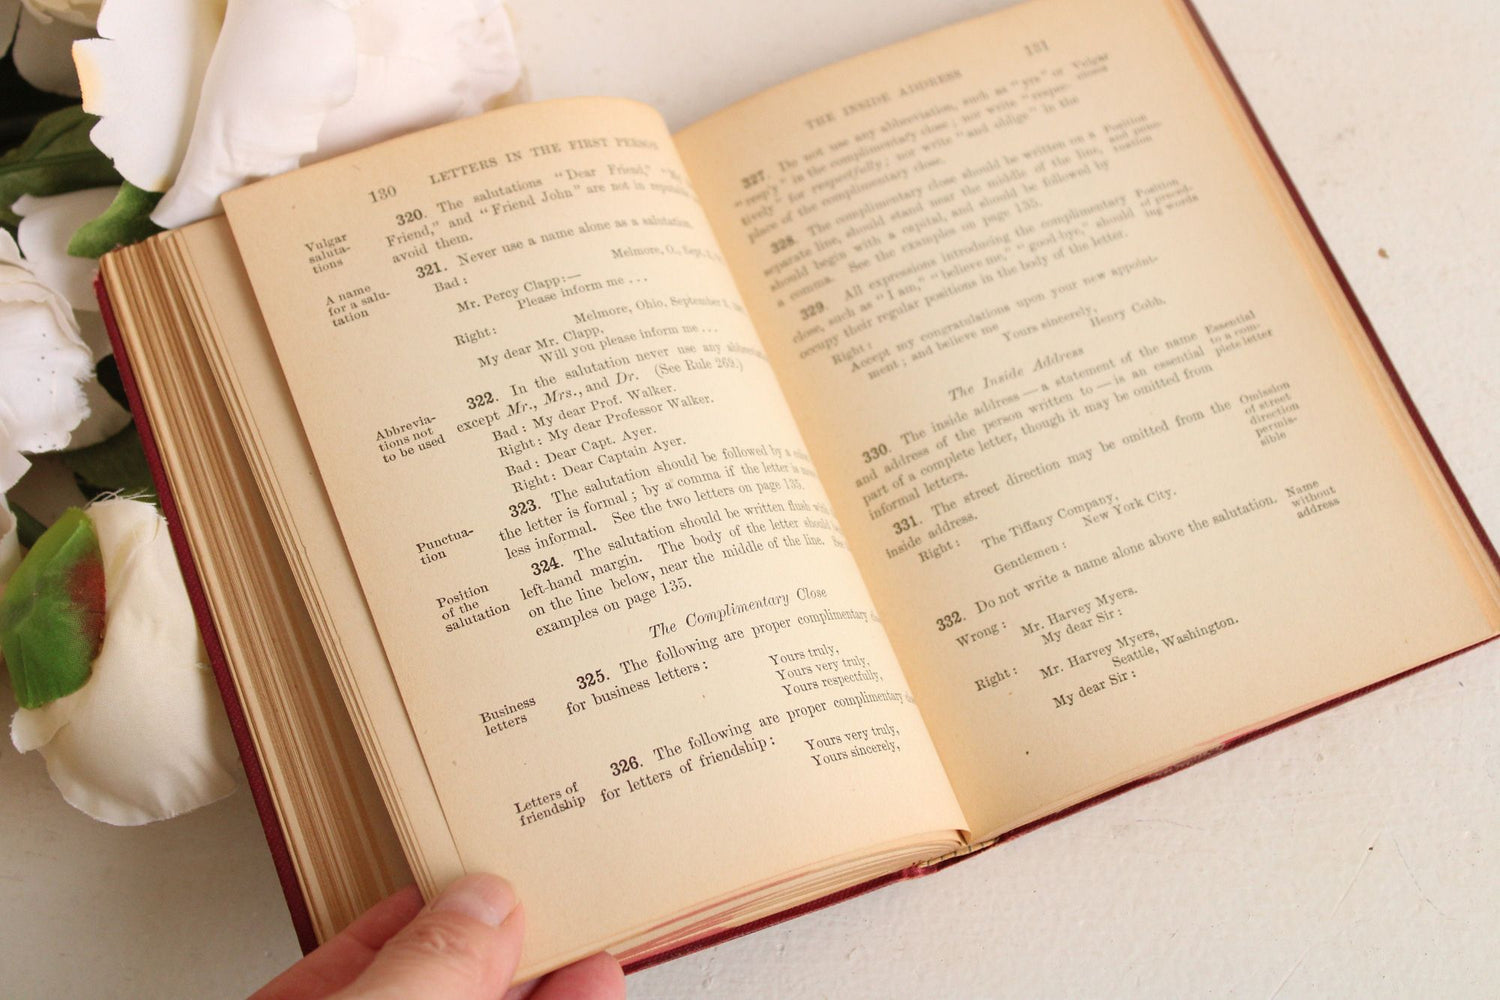 130 LETTERS IN THE FIRST PERSON
Vulgar
saluta-
tions
320. The salutations "Dear Friend," "My
Friend," and "Friend John" are not in
avoid them.
A name
for a salu-
tation
321. Never use a name alone as a salutation.
Bad: Melmore, O., Sept.
Mr. Percy Clapp:—
Please inform me ...
Right: Melmore, Ohio, September
My dear Mr. Clapp,
Will you please inform me ...
Abbrevia-
tions not
to be used
322. In the salutation never use any
except Mr., Mrs., and Dr. (See Rule 269.)
Bad: My dear Prof. Walker.
Right: My dear Professor Walker.
Bad: Dear Capt. Ayer.
Right: Dear Captain Ayer.
Punctua-
tion
323. The salutation should be followed by a
the letter is formal; by a comma if the letter is
less informal. See the two letters on page 135.
Position
of the
salutation
324. The salutation should be written flush
left-hand margin. The body of the letter should
on the line below, near the middle of the line.
examples on page 135.
The Complimentary Close
Business
letters
325. The following are proper complimentary
for business letters: Yours truly,
Yours very truly,
Yours respectfully,
Letters of
friendship
326. The following are proper complimentary
for letters of friendship: Yours very truly,
Yours sincerely,
THE INSIDE ADDRESS 131
327. Do not use any abbreviation, such as "yrs" or
"resp'y" in the complimentary close; nor write "respec-
tively" for respectfully; nor write "and oblige" in the
place of the complimentary close.
Vulgar
closes
328. The complimentary close should be written on a
separate line, should stand near the middle of the line,
should begin with a capital, and should be followed by
a comma. See the examples on page 135.
Position
and punc-
tuation
329. All expressions introducing the complimentary
close, such as "I am," "believe me," "good-bye," should
occupy their regular positions in the body of the letter.
Position
of preced-
ing words
Right:
Accept my congratulations upon your new appoint-
ment; and believe me
Yours sincerely,
Henry Cobb.
The Inside Address
330. The inside address—a statement of the name
and address of the person written to—is an essential
part of a complete letter, though it may be omitted from
informal letters.
Essential
to a com-
plete letter
331. The street direction may be omitted from the
inside address.
Omission
of street
direction
permis-
sible
Right: The Tiffany Company,
New York City.
Gentlemen:
332. Do not write a name alone above the salutation.
Name
without
address
Wrong: Mr. Harvey Myers.
My dear Sir:
Right: Mr. Harvey Myers,
Seattle, Washington.
My dear Sir: